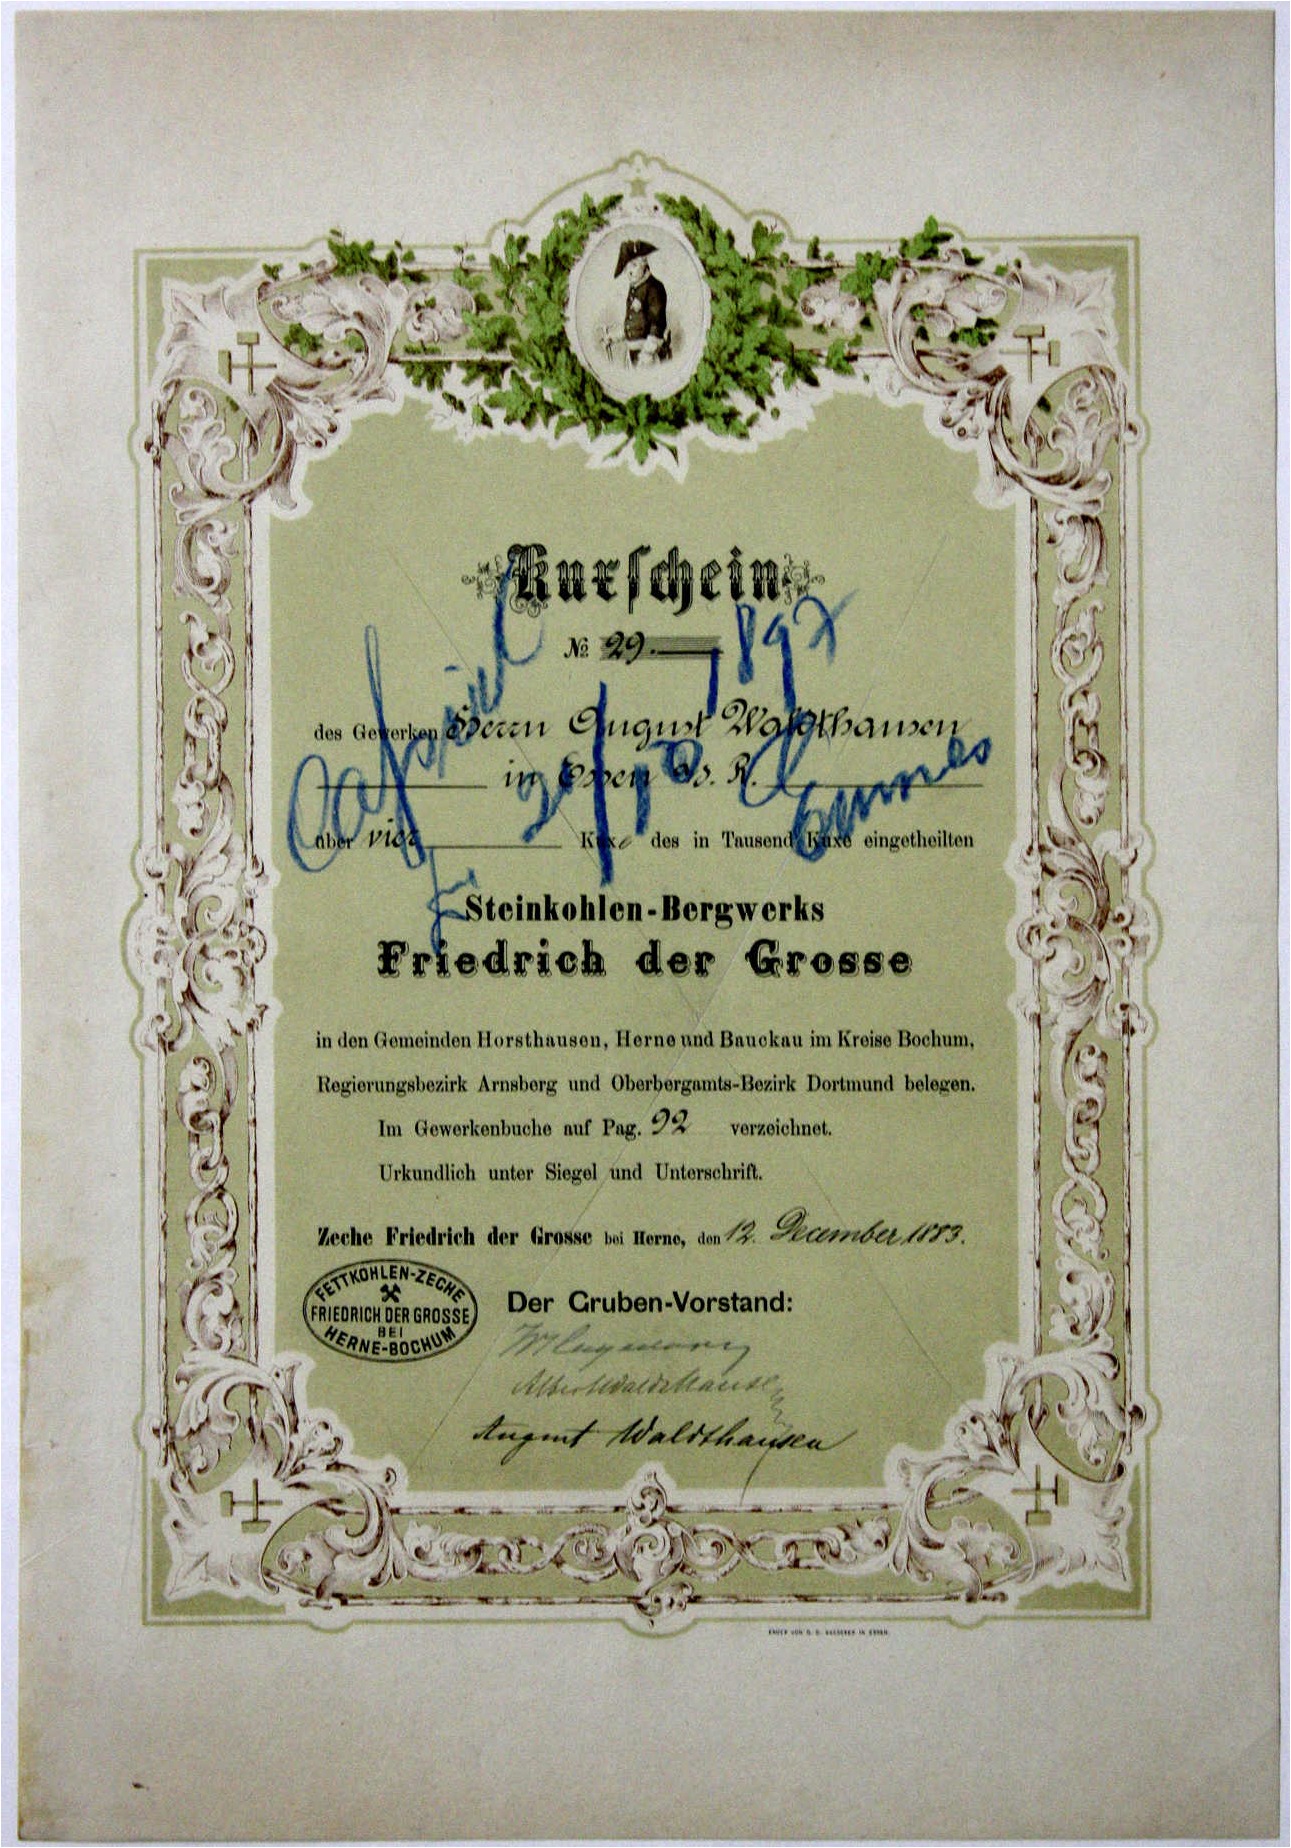 Kuxschein
№ 29.
des Gewerken Herrn August Waldthausen
in Essen a. d. R.
über vier Kuxe des in Tausend Kuxe eingetheilten
Steinkohlen-Bergwerks
Friedrich der Grosse
in den Gemeinden Horsthausen, Herne und Bauckau im Kreise Bochum,
Regierungsbezirk Arnsberg und Oberbergamts-Bezirk Dortmund belegen.
Im Gewerkenbuche auf Pag. 92 verzeichnet.
Urkundlich unter Siegel und Unterschrift.
Zeche Friedrich der Grosse bei Herne, den 12. December 1883.
FETTKOHLEN-ZECHE
FRIEDRICH DER GROSSE
BEI
HERNE-BOCHUM
Der Gruben-Vorstand:
Albert Waldthausen
August Waldthausen
1897